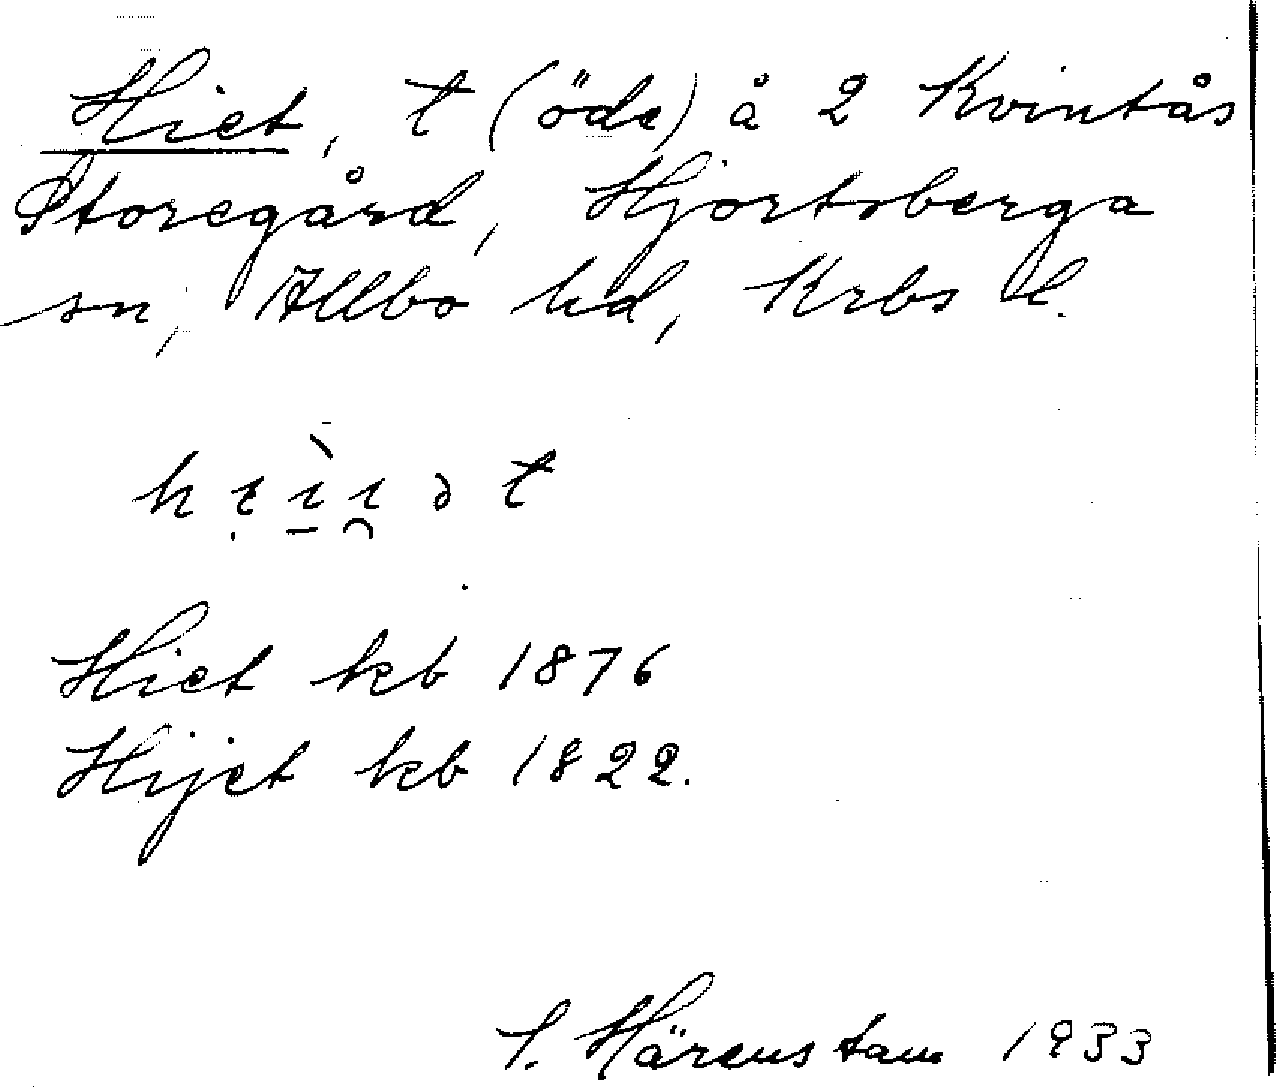 Hiet, t (öde) å 2 Kvintås
Storegård, Hjortsberga
sn, Allbo hd, Krbs l.
Hiet kb 1876
Hijet kb 1822.
S. Härenstam 1933